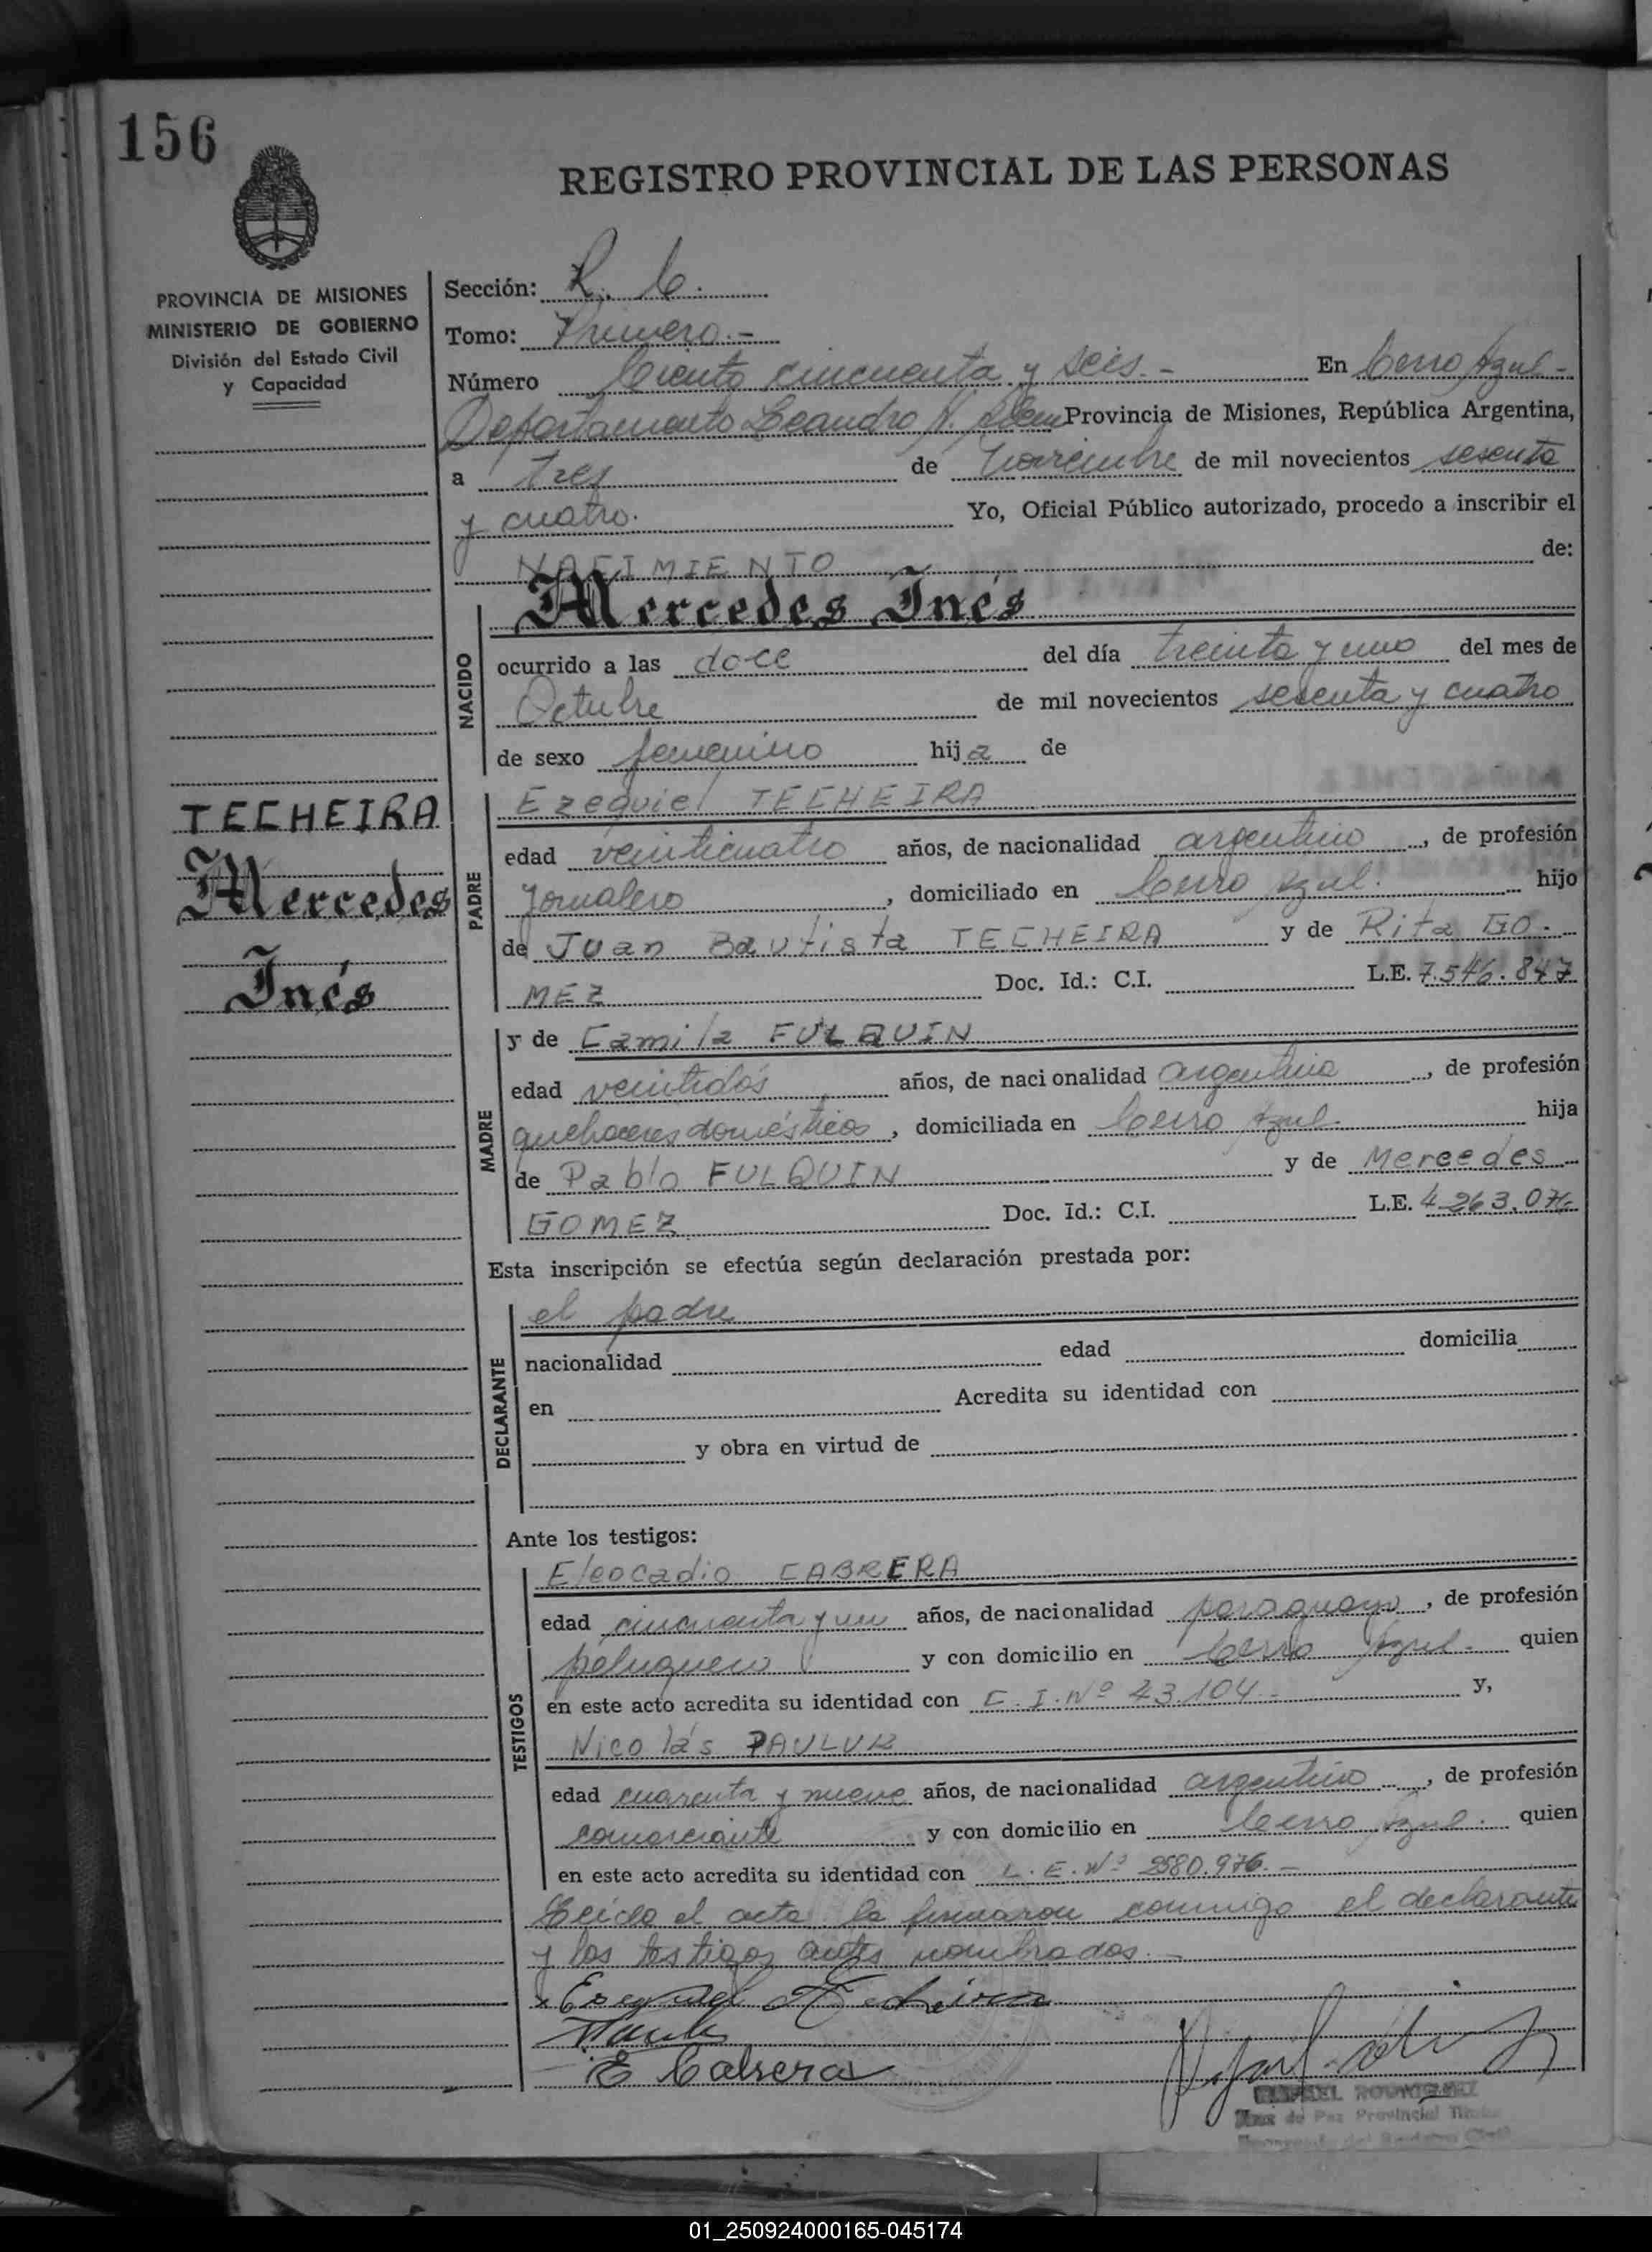 156
REGISTRO PROVINCIAL DE LAS PERSONAS
PROVINCIA DE MISIONES
MINISTERIO DE GOBIERNO
División del Estado Civil
y Capacidad
Sección: R. C.
Tomo: Primero.-
Número Ciento cincuenta y seis.- En Cerro Azul-
Departamento Leandro N. Alem Provincia de Misiones, República Argentina,
a tres de noviembre de mil novecientos sesenta
y cuatro. Yo, Oficial Público autorizado, procedo a inscribir el
NACIMIENTO de:
NACIDO
Mercedes Inés
ocurrido a las doce del día treinta y uno del mes de
Octubre de mil novecientos sesenta y cuatro
de sexo femenino hija de
TECHEIRA
Mercedes
Inés
PADRE
Ezequiel TECHEIRA
edad veinticuatro años, de nacionalidad argentino, de profesión
Jornalero, domiciliado en Cerro Azul. hijo
de Juan Bautista TECHEIRA y de Rita GO-
MEZ Doc. Id.: C.I. L.E. 7.546.847
MADRE
y de Camila FULQUIN
edad veintidós años, de nacionalidad argentina, de profesión
quehaceres domésticos, domiciliada en Cerro Azul. hija
de Pablo FULQUIN y de Mercedes
GOMEZ Doc. Id.: C.I. L.E. 4.263.07
Esta inscripción se efectúa según declaración prestada por:
DECLARANTE
el padre
nacionalidad edad domicilia
en Acredita su identidad con
y obra en virtud de
Ante los testigos:
TESTIGOS
Eleocadio CABRERA
edad cincuenta y un años, de nacionalidad paraguayo, de profesión
peluquero y con domicilio en Cerro Azul. quien
en este acto acredita su identidad con C.I. Nº 43.104.- y,
Nicolás PAULUK
edad cuarenta y nueve años, de nacionalidad argentino, de profesión
comerciante y con domicilio en Cerro Azul. quien
en este acto acredita su identidad con L.E. Nº 2580.976.-
Leída el acta la firmaron conmigo el declarante
y los testigos antes nombrados.-
E Cabrera
RAFAEL RODRIGUEZ
Juez de Paz Provincial Titular
01_250924000165-045174